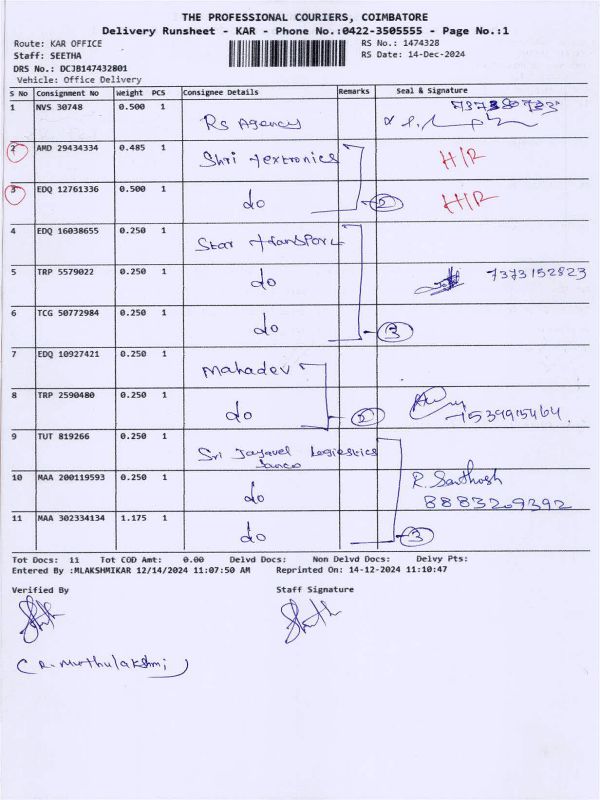 THE PROFESSIONAL COURIERS, COIMBATORE
Delivery Runsheet - KAR - Phone No.:0422-3505555 - Page No.:1
Route: KAR OFFICE RS No.: 1474328
Staff: SEETHA RS Date: 14-Dec-2024
DRS No.: DCJB147432801
Vehicle: Office Delivery
S No Consignment No Weight PCS Consignee Details Remarks Seal & Signature
1 NVS 30748 0.500 1 Rs Agency
2 AMD 29434334 0.485 1 Shri Textronics H/R
3 EDQ 12761336 0.500 1 do 2 H/R
4 EDQ 16038655 0.250 1 Star Transport
5 TRP 5579022 0.250 1 do 7373152823
6 TCG 50772984 0.250 1 do 3
7 EDQ 10927421 0.250 1 Mahadev
8 TRP 2590480 0.250 1 do 2 7539915464.
9 TUT 819266 0.250 1 Sri Jayavel Logiestics
10 MAA 200119593 0.250 1 do R. Santhosh
8883209392
11 MAA 302334134 1.175 1 do 3
Tot Docs: 11 Tot COD Amt: 0.00 Delvd Docs: Non Delvd Docs: Delvy Pts:
Entered By :MLAKSHMIKAR 12/14/2024 11:07:50 AM Reprinted On: 14-12-2024 11:10:47
Verified By Staff Signature
(R. Muthulakshmi)